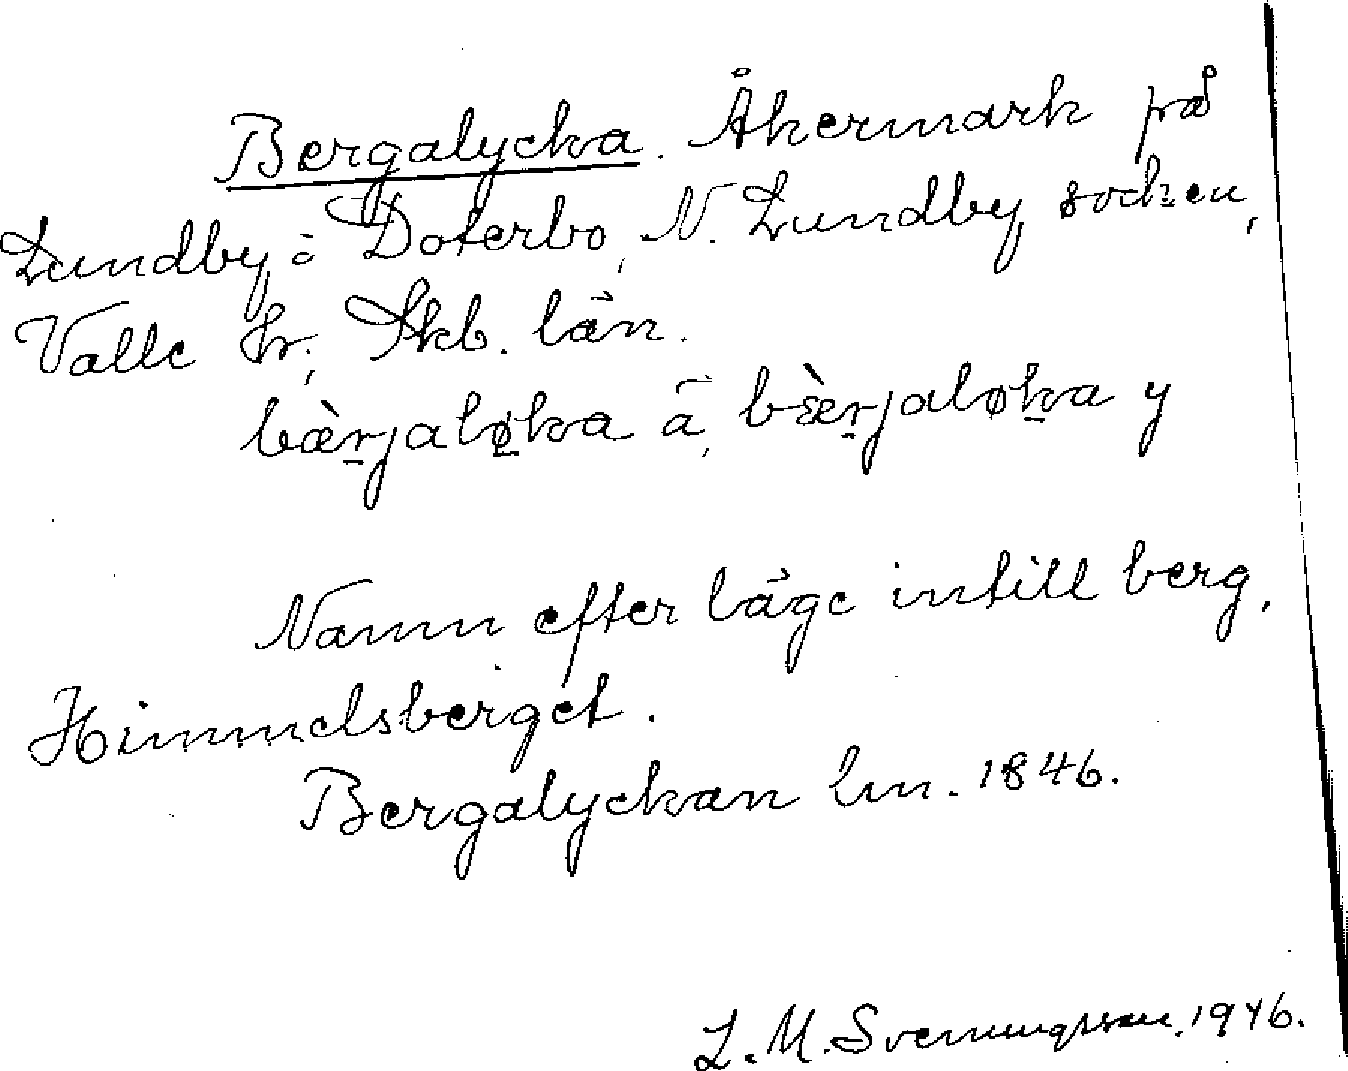 Bergalycka. Åkermark på
Lundby i Doterbo, N. Lundby socken,
Valle hr, Skb. län.
bæ̀r̠jalø̠ka ä, bæ̀r̠jaløk̠a y
Namn efter läge intill berg,
Himmelsberget.
Bergalyckan lm. 1846.
L. M. Svenungsson. 1946.